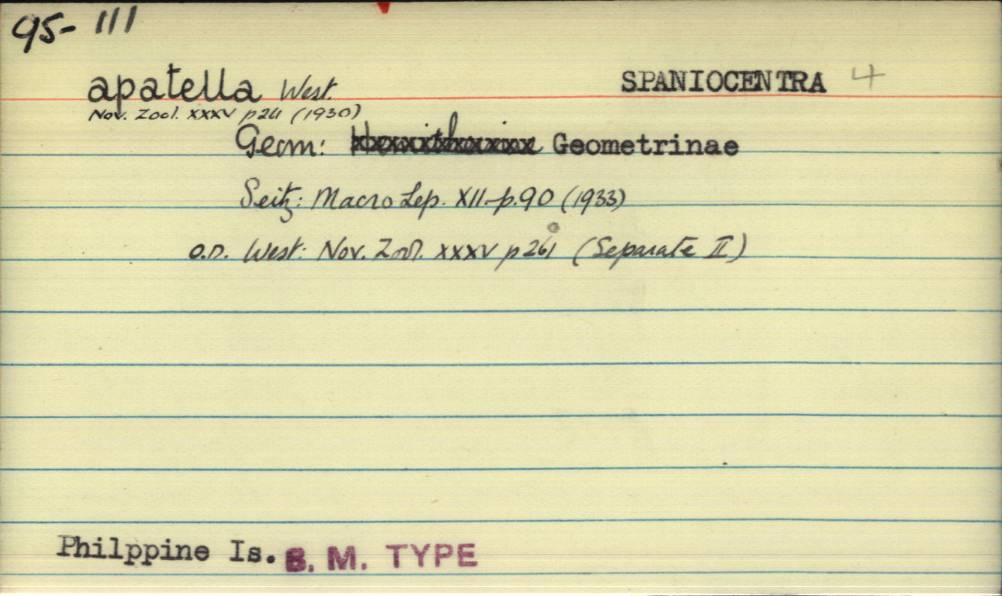 95-111
apatella West. SPANIOCENTRA 4
Nov. Zool. XXXV p 261 (1930)
Geom: Geometrinae
Seitz: Macro Lep. XII p. 90 (1933)
o.D. West: Nov. Zool. XXXV p 261 (Separate II)
Philppine Is. B. M. TYPE